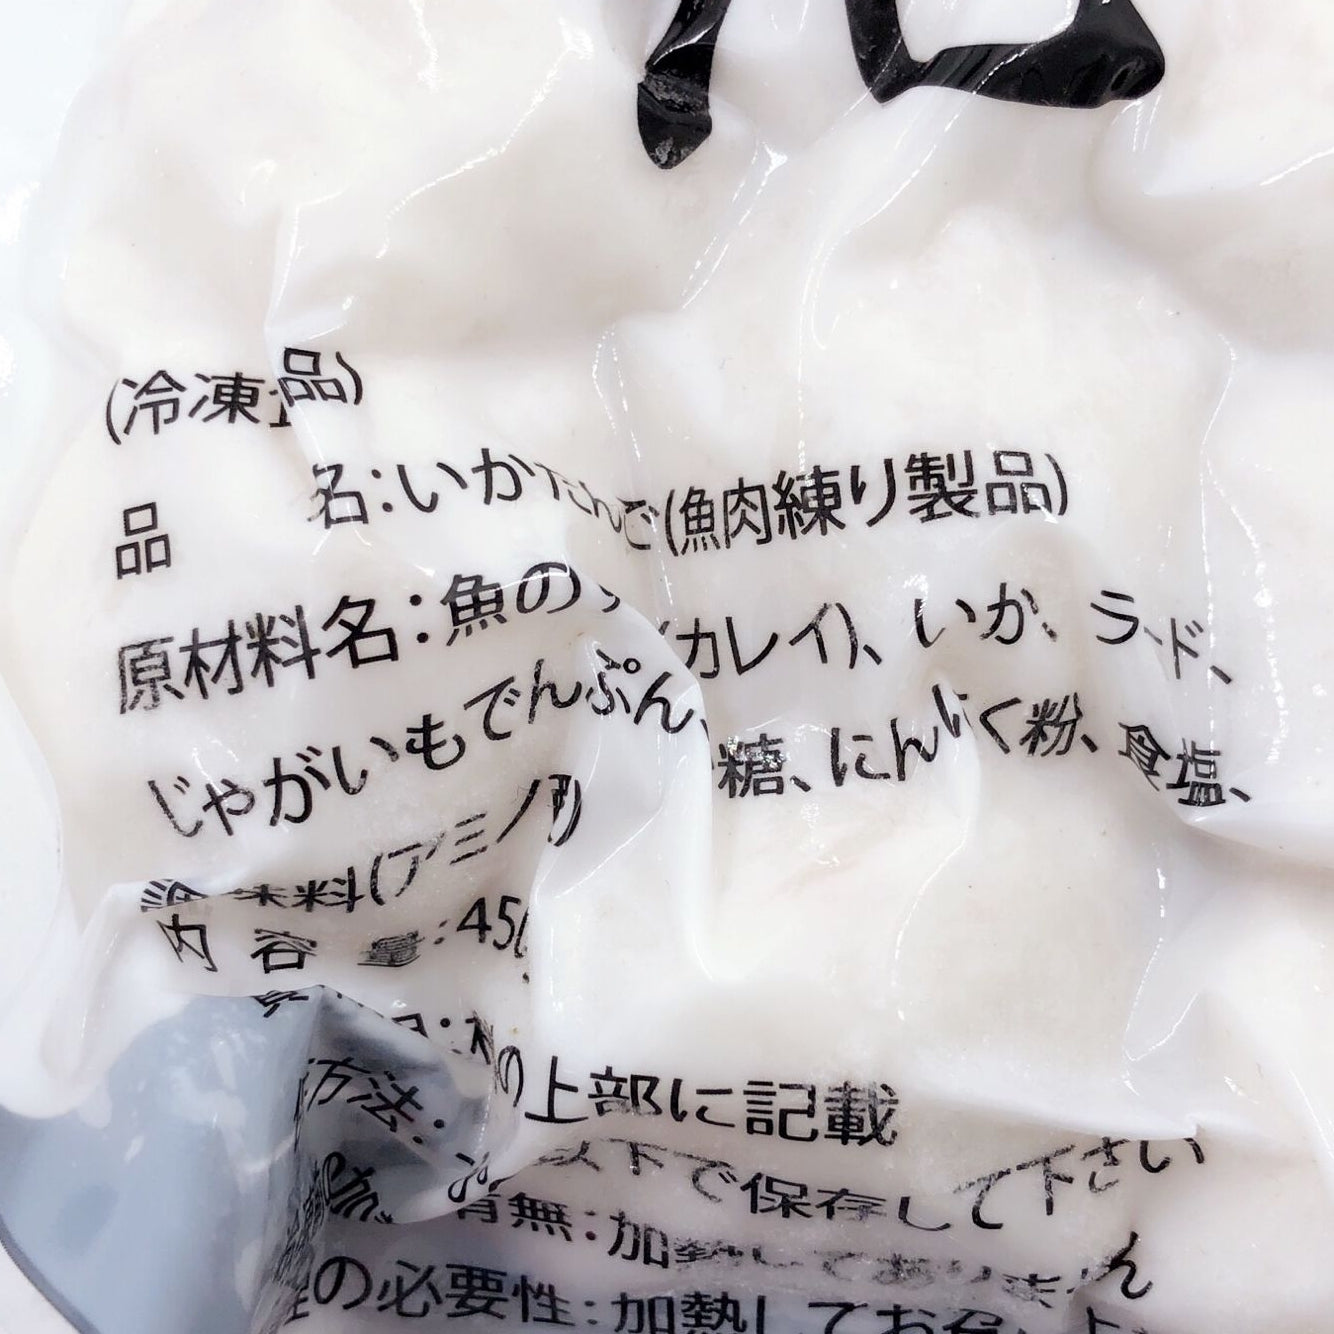 (冷凍食品)
品 名:いかだんご(魚肉練り製品)
原材料名:魚の (カレイ)、いか、ラード、
じゃがいもでんぷん、 糖、にんにく粉、食塩、
調味料(アミノ
内 容 量:450
の上部に記載
方法: 以下で保存して下さい
有無:加熱してありません
の必要性:加熱してお召